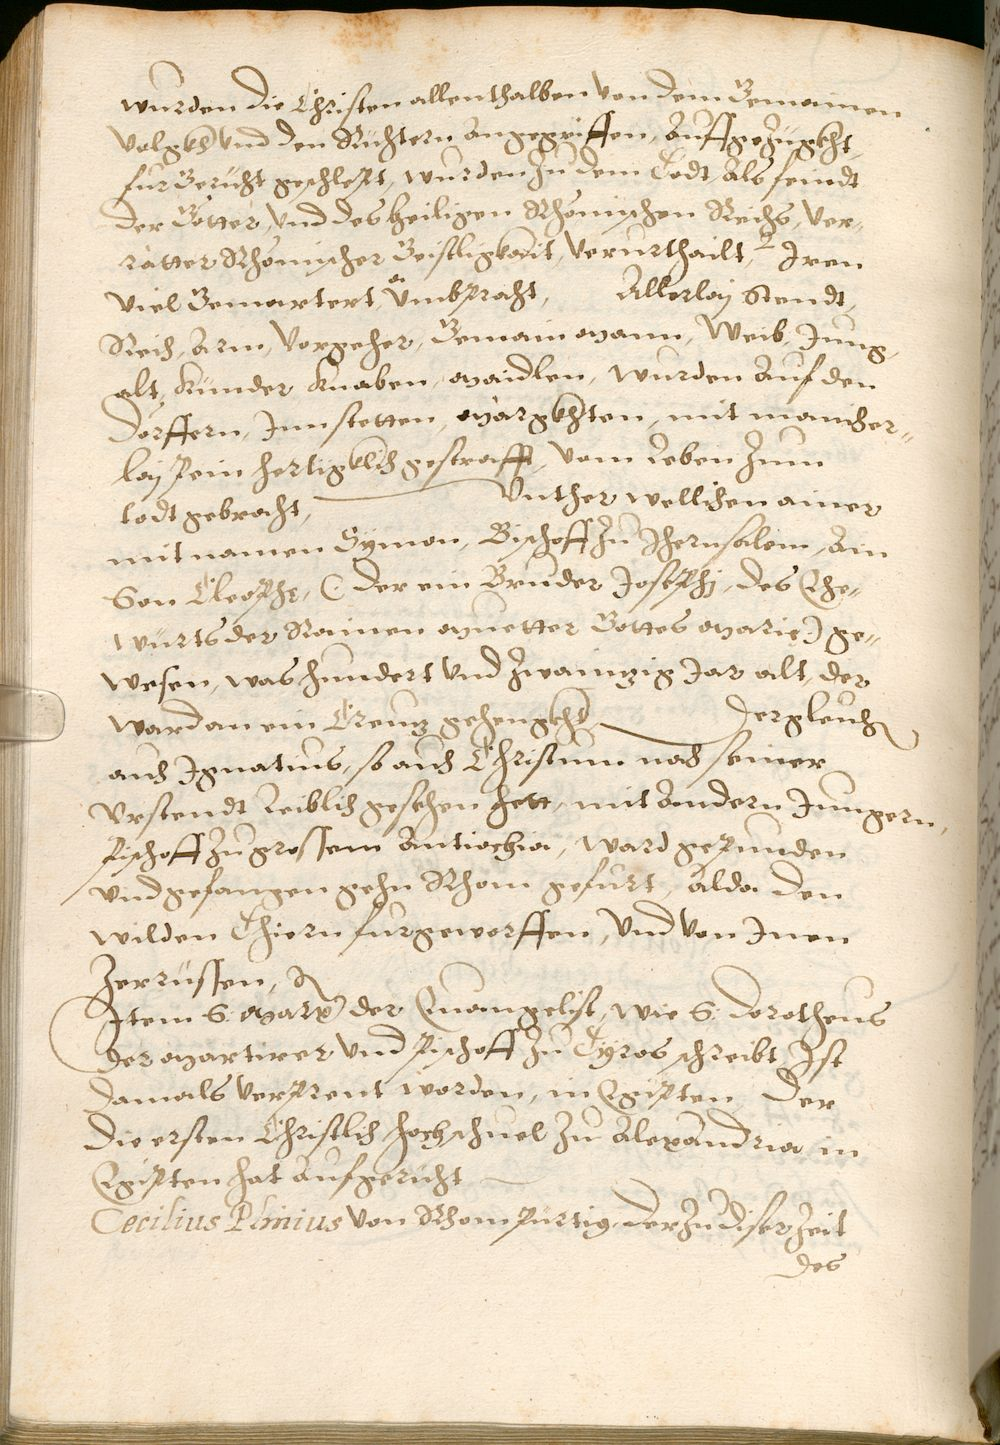 wurden die Christen allenthalben von dem Gemainen
Volgkh vnd den Richtern angegriffen, auffgezugkht,
fur Gericht geschlept, wurden zu dem Todt, als feindt
der Götter, vnd des heiligen Rhömischen Reichs, Ver-
rätter Rhömischer Geistligkait, verurthailt, Iren
viel Gemartert, vmbpracht, Allerlaj Stendt,
Reich, Arm, Vorgeher, Gemain Mann, Weib, Jung,
alt, Künder Knaben, Maidlen, wurden auf den
Dörffern, Jnn stetten, Märgkhten, mit mancher=
laj pein hertigklich gestrafft, vom Leben zum
todt gebracht, Vnther wellichen ainer
mit namen Sÿmon, Bischoff zu Jherusalem, ain
Son Cleophę, (der ein Bruder Josephj, des Ehe=
würts der Rainen Muetter Gottes Marię) ge=
wesen, was hundert vnd zwaintzig Jar alt, der
ward an ein Creutz gehengkht, Dergleich
auch Ignatius, so auch Christum nach seiner
vrstendt Leiblich gesehen hett, mit andern Jungern,
Pischoff zu grossem Antiochia, ward gepunden
vnd gefangen gehn Rhom gefürt, alda den
wilden Thiern furgeworffen, vnd von Inen
zerrüssen,
Item S. Marx der Euangelist, wie S. Dorotheus
der Martirer vnd Pischoff zu Tÿros schreibt, Ist
damals verprent worden, in Egipten, Der
die ersten Christlich hochschuel zu Alexandria in
Egipten hat aufgericht
Cecilius Plinius von Rhom pürtig, der zu diser Zeit
des